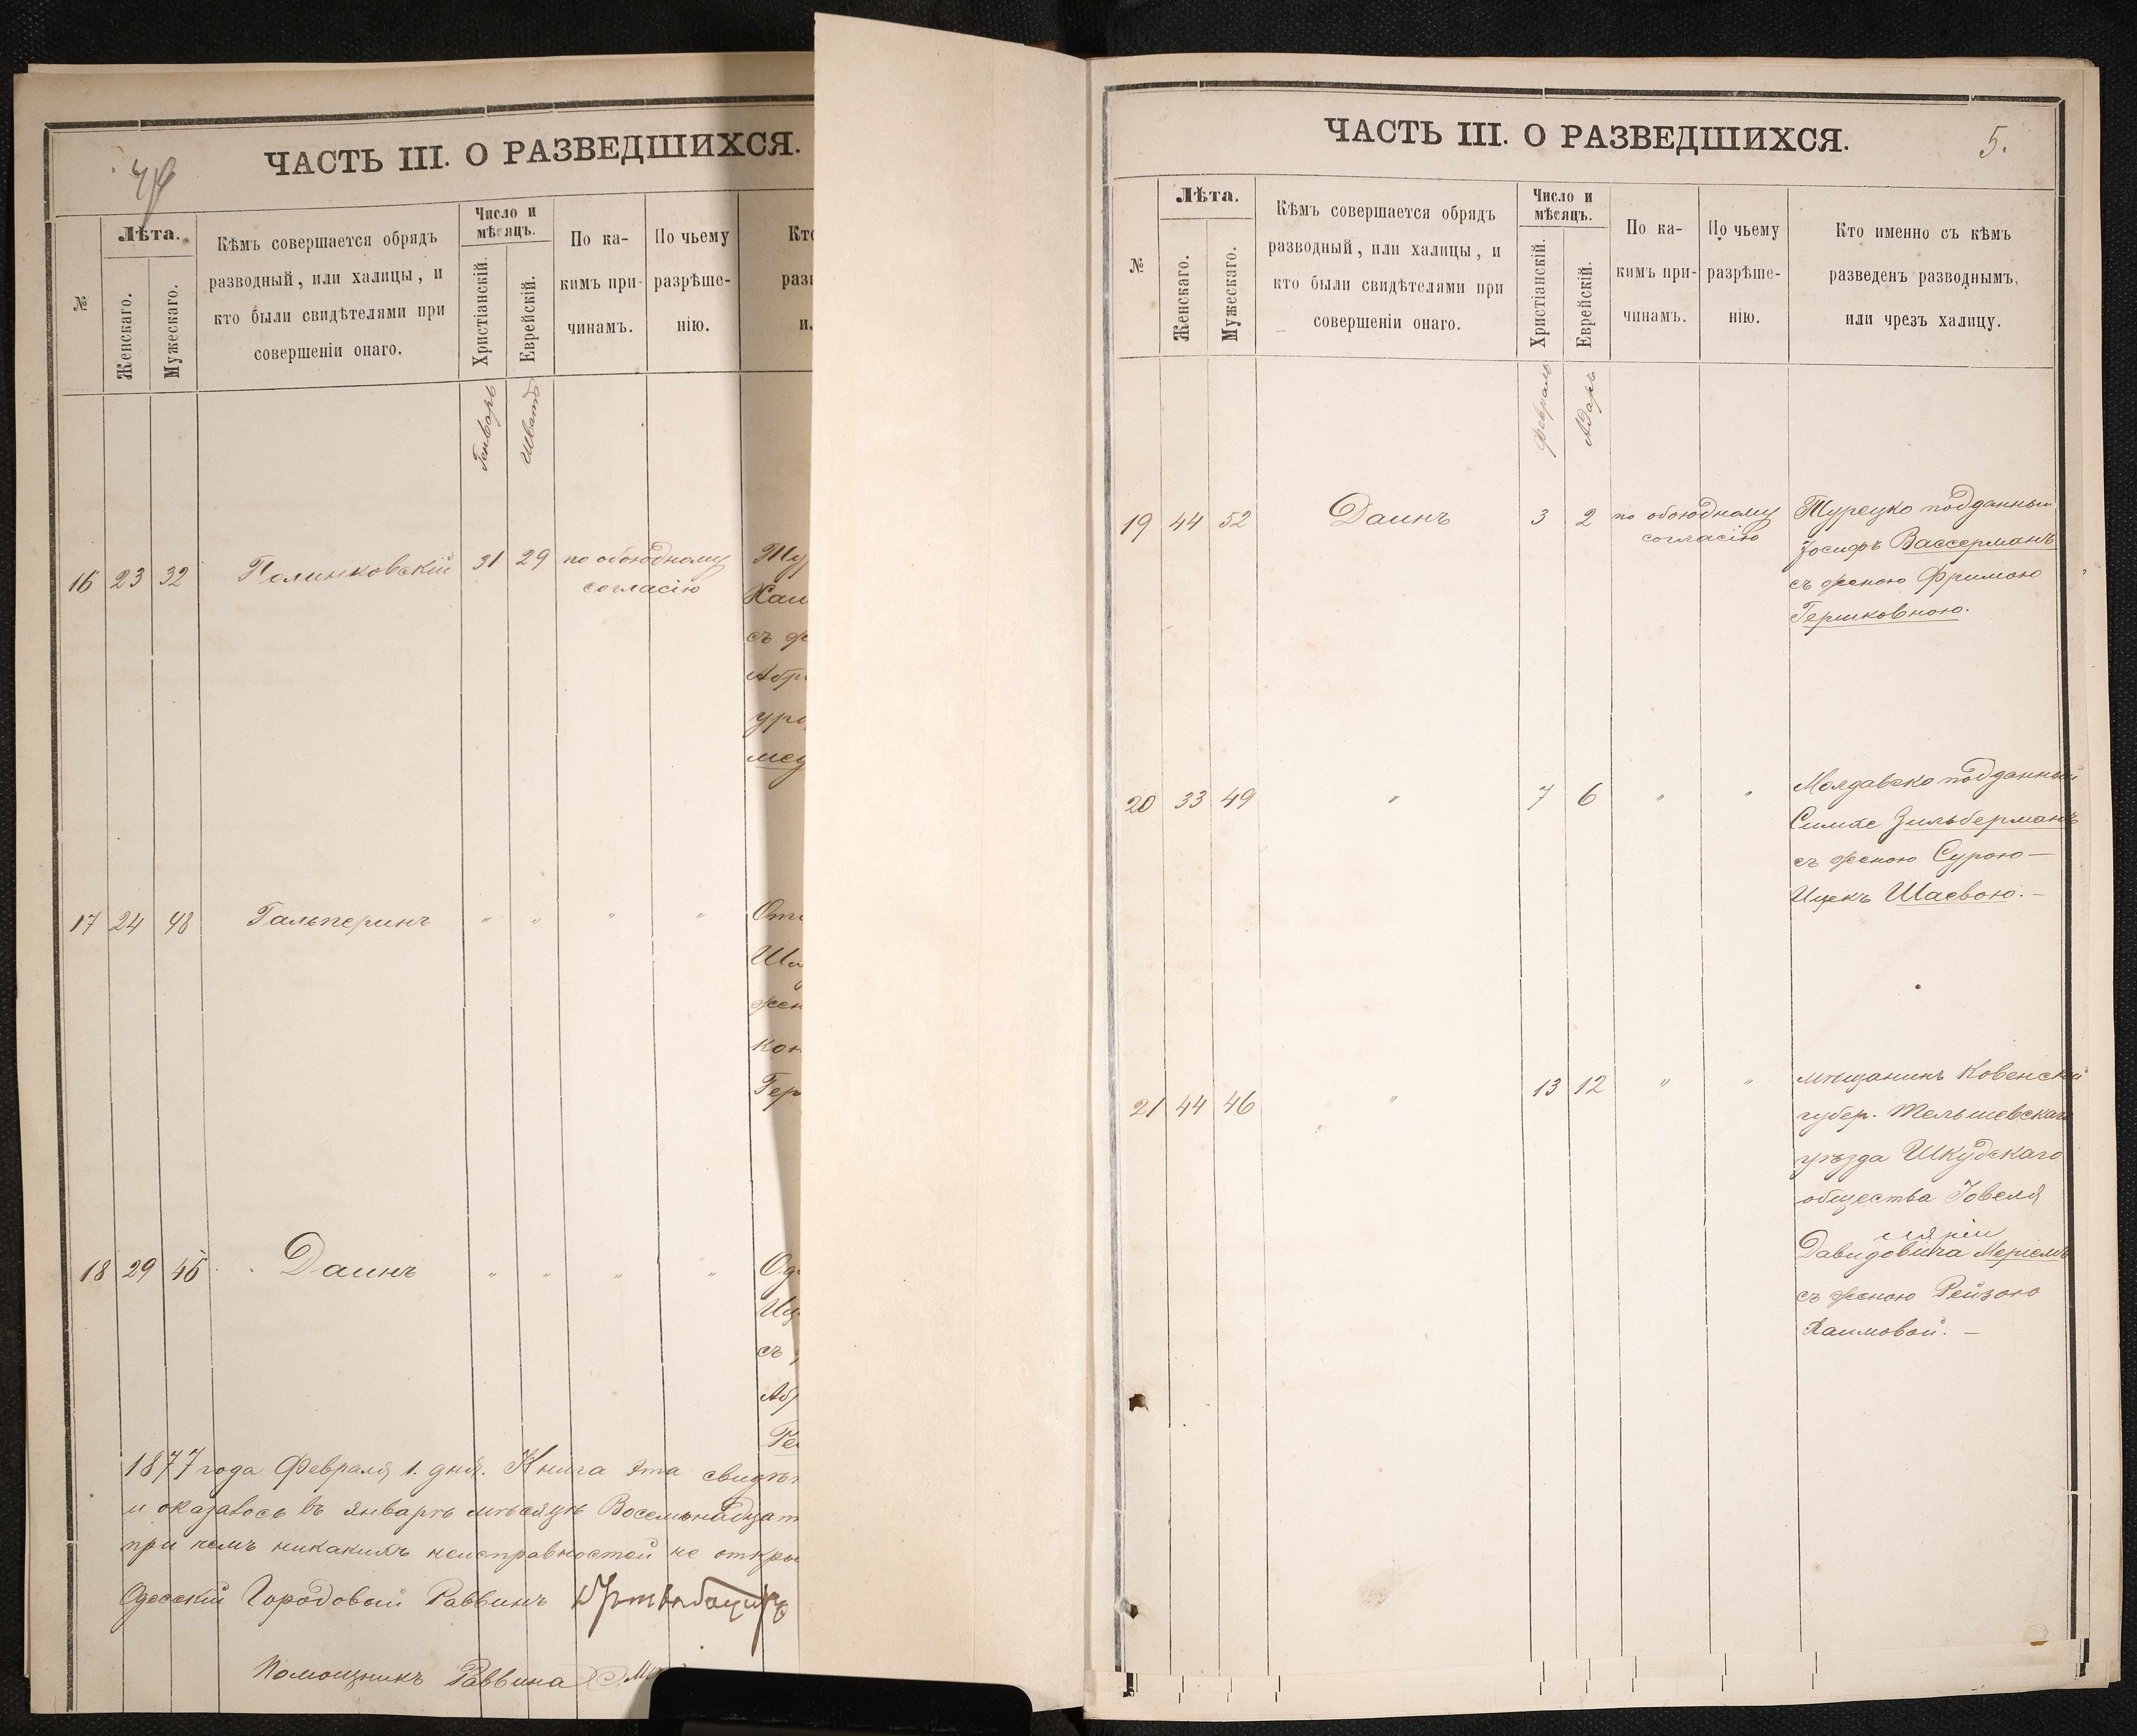 ЧАСТЬ III. О РАЗВЕДШИХСЯ.
№
Лѣта.
Женскаго.
Мужескаго.
Кѣмъ совершается обрядъ
разводный, или халицы, и
кто были свидѣтелями при
совершеніи онаго.
Число и
мѣсяцъ.
Христіанскій.
Еврейскій.
По ка-
кимъ при-
чинамъ.
По чьему
разрѣше-
нію.
Генварь
Шватъ
16 23 32 Полинковскій 31 29 по обоюдному
согласію
17 24 48 Гальперинъ " " " "
18 29 45 Даинъ " " " "
1877 года Февраля 1. дня. Книга эта
и оказалось въ январѣ мѣсяцѣ
при чемъ никакихъ неисправностей не
Одесскій Городовой Раввинъ
Помощникъ Раввина
ЧАСТЬ III. О РАЗВЕДШИХСЯ.
5.
№
Лѣта.
Женскаго.
Мужескаго.
Кѣмъ совершается обрядъ
разводный, или халицы, и
кто были свидѣтелями при
совершеніи онаго.
Число и
мѣсяцъ.
Христіанскій.
Еврейскій.
По ка-
кимъ при-
чинамъ.
По чьему
разрѣше-
нію.
Кто именно съ кѣмъ
разведенъ разводнымъ,
или чрезъ халицу.
Февраль
Адаръ
19 44 52 Даинъ 3 2 по обоюдному Турецко подданный
согласію
Іосифъ Вассерманъ
съ женою Фримою
Гершковною.
20 33 49 " 7 6 " " Молдавско подданный
Симхе Зильберманъ
съ женою Сурою-
Ицекъ Шаевою.-
21 44 46 " 13 12 " " мѣщанинъ Ковенской
губер. Тельшевскаго
уѣзда Шкудскаго
общества Іовеля
Давидовича
съ женою Рейзою
Хаимовой.-